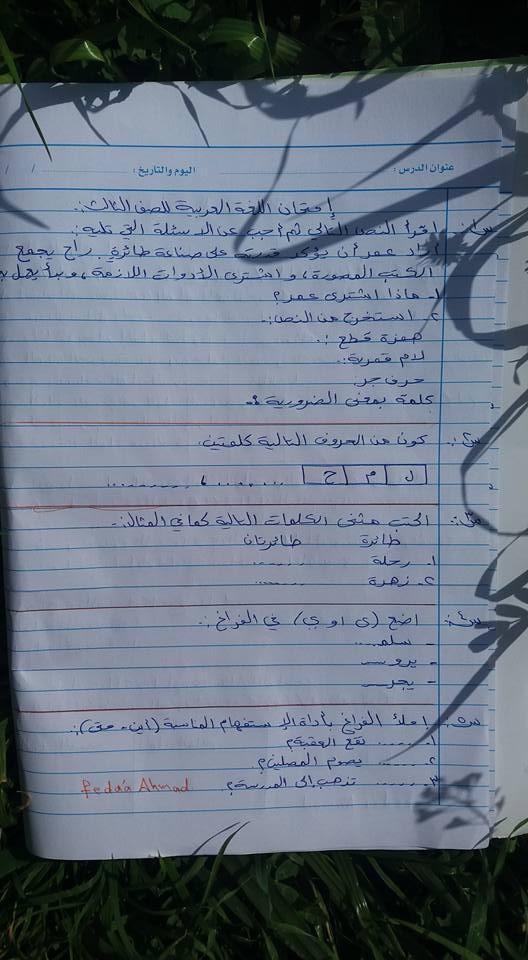 عنوان الدرس: اليوم والتاريخ: / /
إمتحان اللغة العربية للصف الثالث:
س١: اقرأ النص التالي ثم أجب عن الاسئلة التي تليه:
أراد عمر أن يؤكد قدرته على صناعة طائرة، راح يجمع
الكتب المصورة، واشترى الأدوات اللازمة، وبدأ يعمل
١- ماذا اشترى عمر؟
٢- استخرج من النص:-
همزة قطع :
لام قمرية:
حرف جر:
كلمة بمعنى الضرورية :-
س٢: كون من الحروف التالية كلمتين.
ل م ح ........ ، ........
س٣: اكتب مثنى الكلمات التالية كما في المثال:-
طائرة طائرتان
١- رحلة ........
٢- زهرة ........
س٤: اضع (ى او ي) في الفراغ :
- سلمـ...
- يرو...
- يجر...
س٥: املأ الفراغ بأداة الإستفهام المناسبة (أين، متى):
١- ........ تقع العقبة؟
٢- ........ يصوم المصلين؟
٣- ........ تذهب إلى المدرسة؟
Feda'a Ahmad